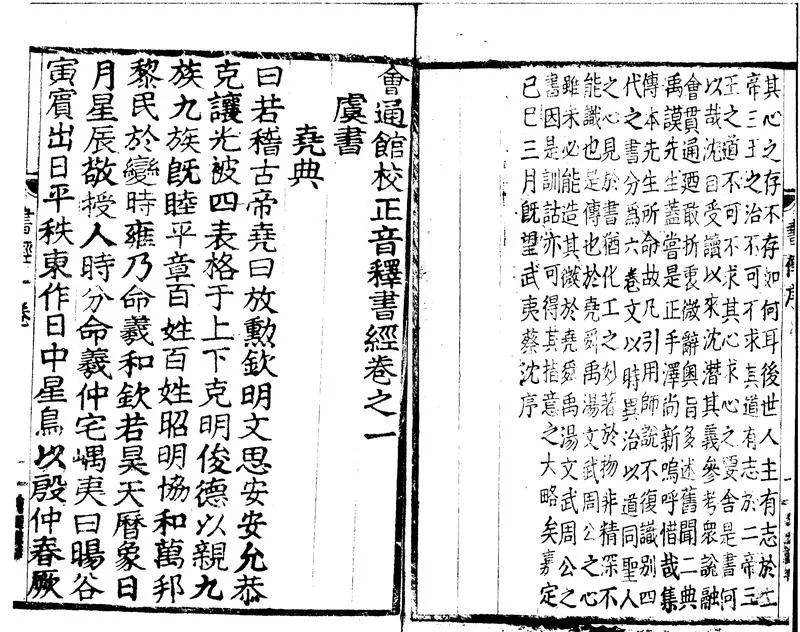 其心之存不存如何耳後世人主有志於二
帝三王之治不可不求其道有志於二帝三
王之道不可不求其心求心之要舍是書何
以哉沈自受讀以來沈潛其義參考衆說融
會貫通廼敢折衷微辭奧旨多述舊聞二典
禹謨先生蓋嘗是正手澤尚新嗚呼惜哉集
傳本先生所命故凡引用師說不復識別四
代之書分爲六卷文以時異治以道同聖人
之心見於書猶化工之妙著於物非精深不
能識也是傳也於堯舜禹湯文武周公之心
雖未必能造其微於堯舜禹湯文武周公之
書因是訓詁亦可得其指意之大略矣嘉定
己巳三月旣望武夷蔡沈序
書傳序
會通館校正音釋書經卷之一
虞書
堯典
曰若稽古帝堯曰放勳欽明文思安安允恭
克讓光被四表格于上下克明俊德以親九
族九族旣睦平章百姓百姓昭明協和萬邦
黎民於變時雍乃命羲和欽若昊天曆象日
月星辰敬授人時分命羲仲宅嵎夷曰暘谷
寅賓出日平秩東作日中星鳥以殷仲春厥
書經一卷
一